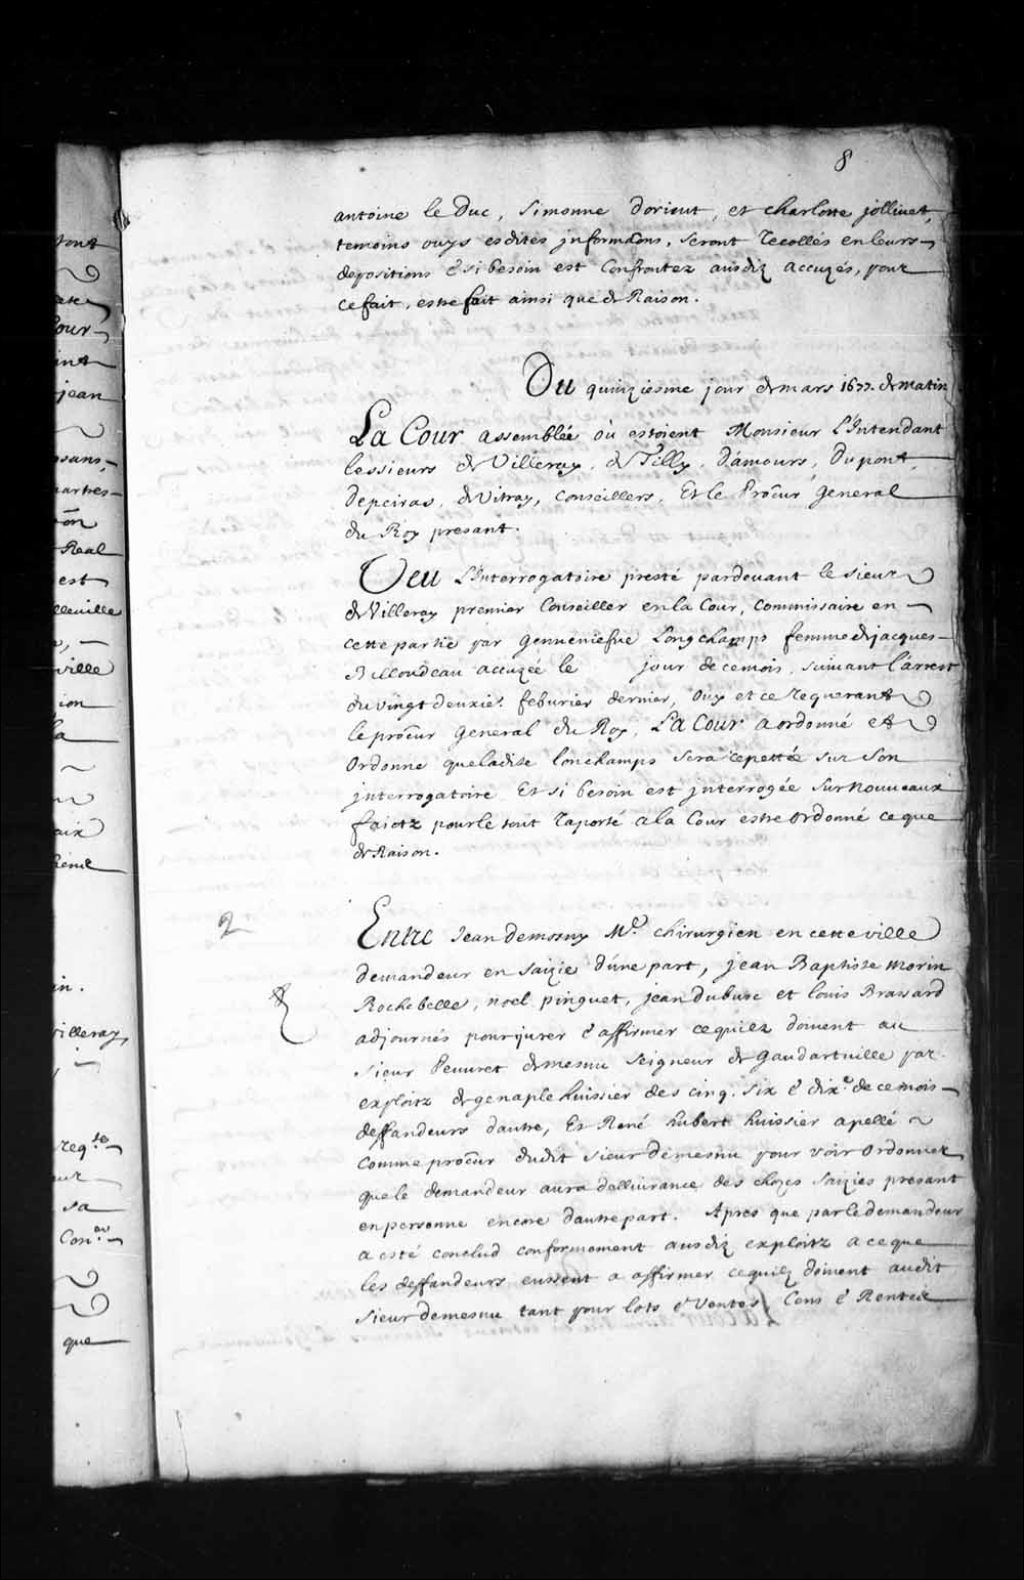 8
antoine le Duc, Simonne dorient, et charlotte jollivet,
temoins ouys esdites informaons, seront recollés en leurs
depositions & si besoin est Confrontez ausdiz accuzés, pour
ce fait, estre fait ainsi que de Raison.
Du quinziesme jour de mars 1677. de matin
La Cour assemblée où estoient Monsieur L'Intendant
les sieurs de Villeray, de Tilly, d'amours, Dupont,
Depeiras, de Vitray, Conseillers, Et le Procur general
du Roy presant.
Veu L'Interrogatoire presté pardevant le sieur
de Villeray premier Conseiller en la Cour, Commissaire en
cette partie par Genneniefve Longchamps femme de jacques
Billoudeau accuzée le jour de ce mois, suivant l'arrest
du vingt deuxie. feburier dernier, Ouy et ce requerant
le procur general du Roy, La Cour a ordonné et
Ordonne que ladite lonchamps sera repettée sur son
jnterrogatoire Et si besoin est jnterrogée sur nouveaux
faictz pour le tout raporté a la Cour estre ordonné ce que
de Raison.
2
Entre Jean demosny Me. chirurgien en cette ville
demandeur en saizie d'une part, jean Baptiste morin
Rochebelle, noel pinguet, jean dubuse et louis Brassard
adjournés pour jurer & affirmer ce quilz doivent au
sieur Peuvret demesnu Seigneur de Gaudartville par
exploitz de genaple huissier des cinq. six & dixe. de ce mois
deffandeurs dautre, Et René hubert huissier apellé
Comme procur dudit sieur demesnu pour voir ordonner
que le demandeur aura dellivrance des chozes saizies presant
en personne encore dautre part. Apres que par le demandeur
a esté conclud conformement ausdiz exploitz a ce que
les deffandeurs eussent a affirmer ce quilz doivent audit
sieur demesnu tant pour lots & ventes, Cens & Rentes